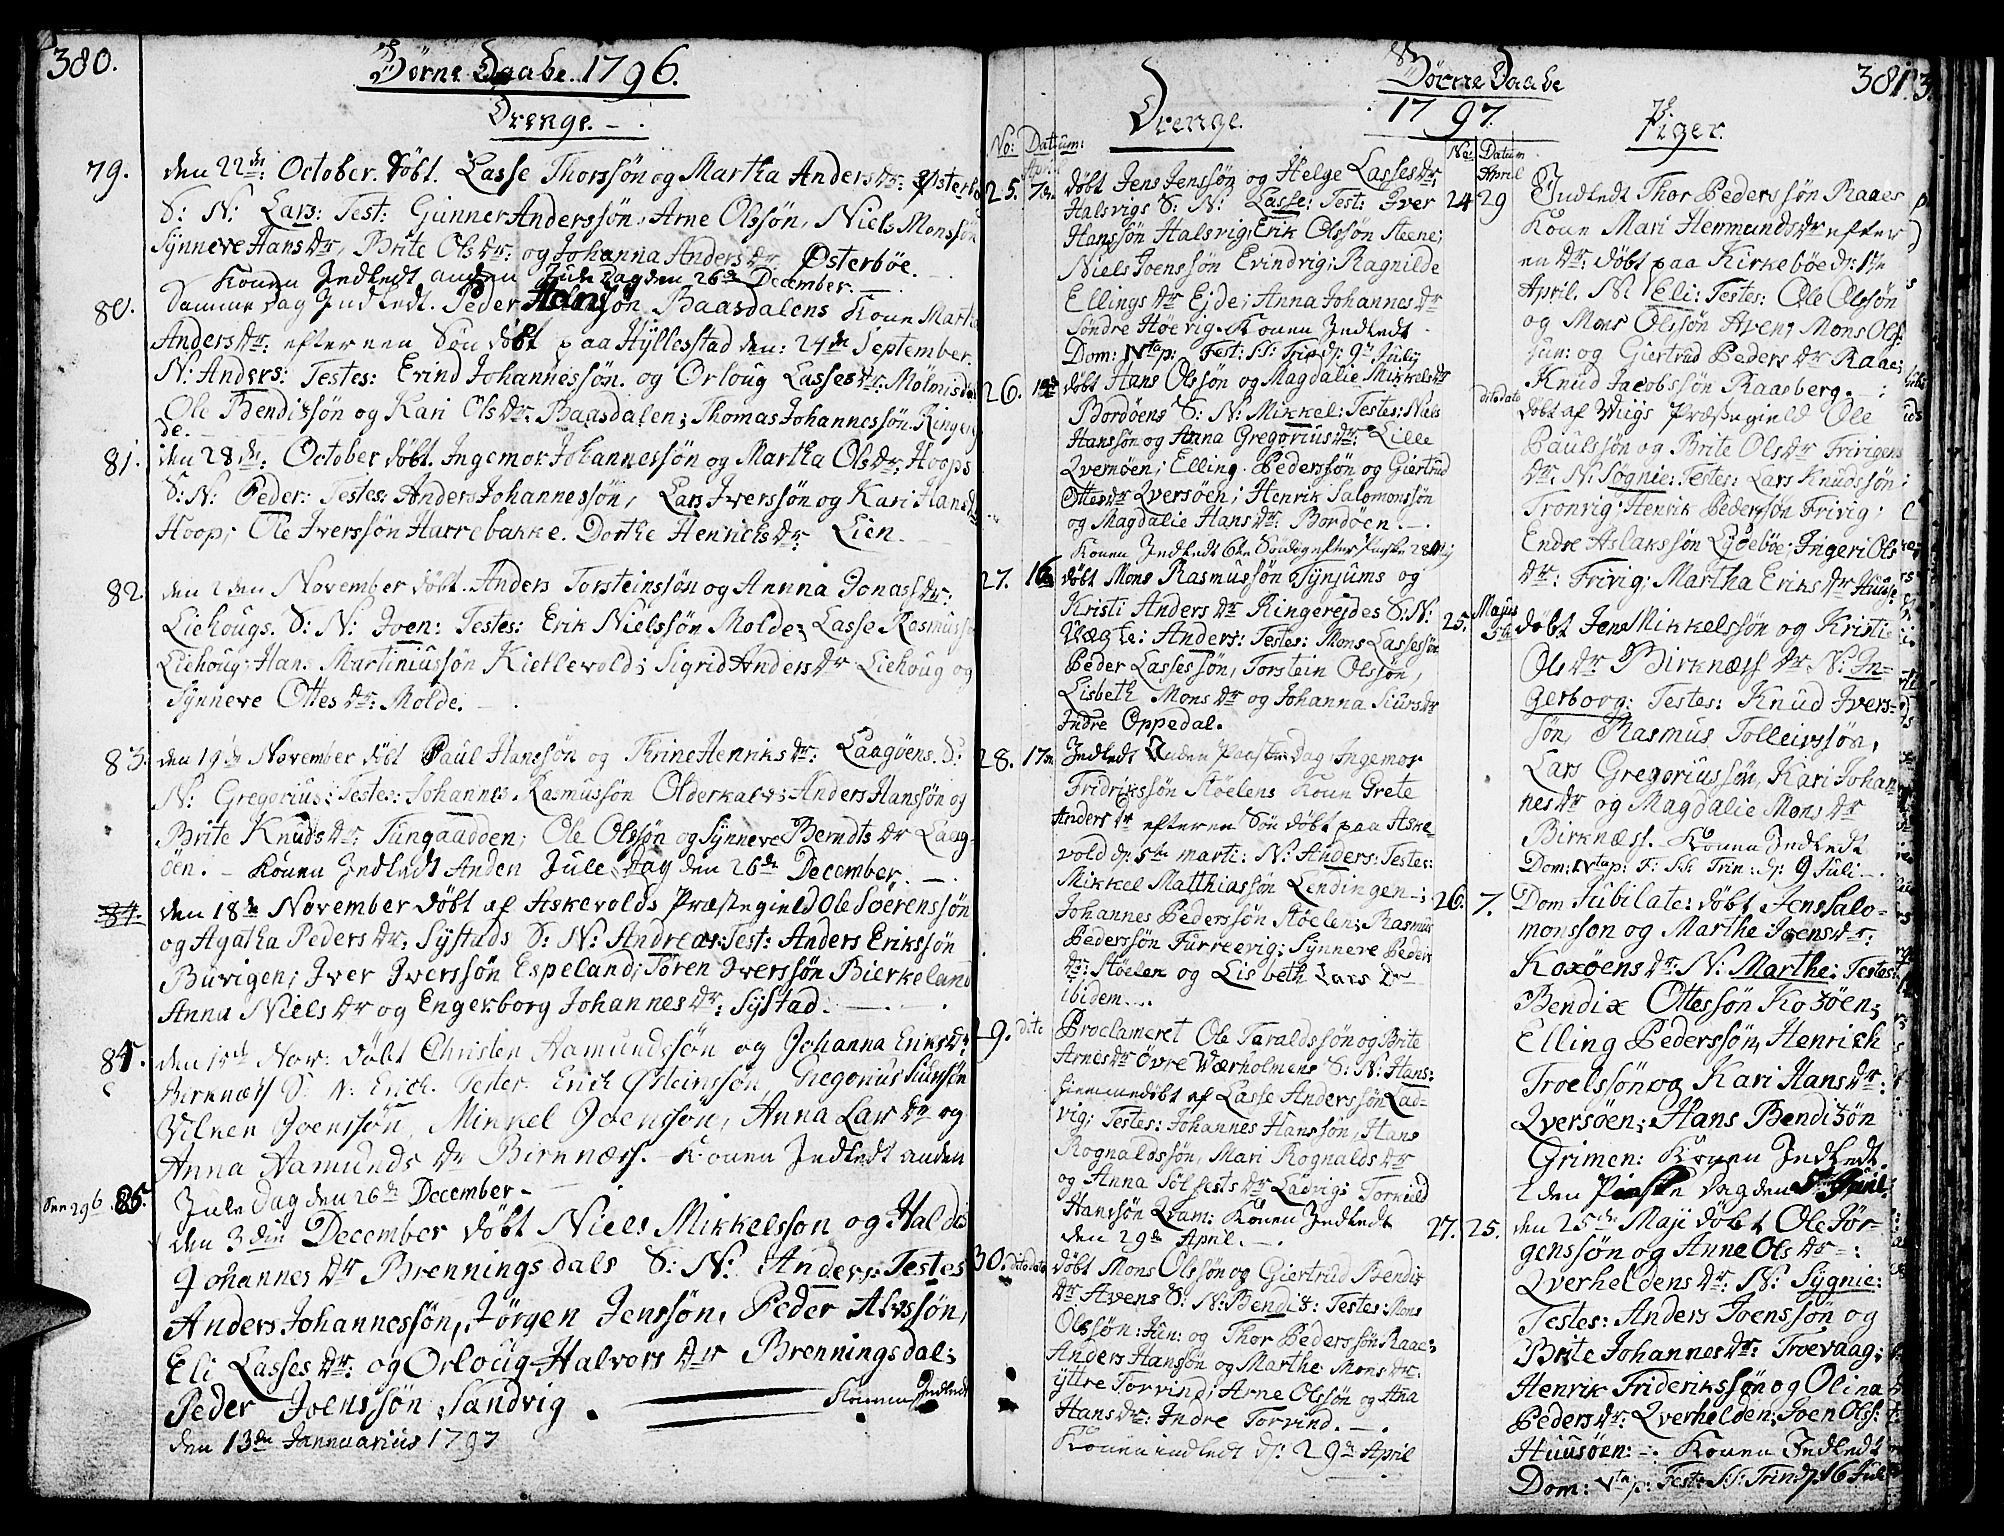 380.
Börne Daabe. 1796.
Drenge. -
79. den 22de: October. döbt. Lasse Thorssön og Martha Anders dr:
S: N: Lars: Test: Gunner Anderssön, Arne Olssön, Niels Monssön
Synneve Hans dr, Brite Ols dr: og Johanna Anders dr Østerböe.
Konen Indledt anden Jule Dag den 26de December. -
80. Samme Dag Indledt. Peder Hanssön Baasdalens Kone Martha
Anders dr: efter een Sön döbt paa Hyllestad den: 24de September.
N: Anders: Testes: Erind Johannessön. og Orloug Lasses dr:
Ole Bendixsön og Kari Ols dr: Baasdalen; Thomas Johannessön Ringere
de.
81. den 28de: October döbt. Ingemor Johannessön og Martha Ols dr: Hoops
S: N: Peder: Testes: Anders Johannessön, Lars Iverssön og Kari Hans dr
Hoop; Ole Iverssön Harrebakke. Dorthe Henrichs dr: Lien.
82. den 2den November döbt. Anders Torsteinssön og Annna Jonas dr:
Liehougs. S: N: Joen: Testes: Erik Nielssön Molde; Lasse Rasmussön
Liehoug; Hans Martiniussön Kiellevold; Sigrid Anders dr Liehoug og
Synneve Ottes dr: Molde.
83. den 19de November döbt Paul Hanssön og Thrine Henriks dr: Laagöens. S:
N: Gregorius: Testes: Johannes Rasmussön Anders Hanssön og
Brite Knuds dr: Sungaadden; Ole Olssön og Synneve Berndts dr Laag-
öen. - Konen Indledt Anden Jule Dag den 26de December. -
84. den 18de November döbt af Askevolds Præstegield Ole Soerenssön
og Agatha Peders dr: Systads S: N: Andreas: Test: Anders Erikssön
Buvigen; Iver Iverssön Espeland; Sören Iverssön Bierkeland
Anna Niels dr og Engerborg Johannes dr: Systad.
84. den Nov: döbt Christen Aamundssön og Johanna Eriks dr:
Birknæss S: N: Erich. Testes: Erich Østeinssön, Gregorius Siurssön
Joenssön, Mikkel Joenssön, Anna Lars dr og
Anna Aamunds dr Birknæss. - Konen Indledt anden
Jule Dag den 26de December -
85. den 3die December döbt Niels Mikkelsson og Haldis
Johannes dr Brenningsdals S: N: Anders: Testes
Anders Johannessön, Jörgen Jenssön, Peder Alvssön,
Eli Lasses dr: og Orloug Halvors dr Brenningsdal;
Peder Joenssön Sandvig. Konen Indledt
den 13de Jannuarius 1797
Börne Daabe
381.
1797.
Drenge.
No: Datum:
25. 7de döbt Jens Jenssön og Helge Lasses dr:
Halsvigs S: N: Lasse: Test: Iver
Hanssön Halsvig; Erik Olssön Steene;
Niels Joenssön Erindvig; Ragnilde
Ellings dr Ejde; Anna Johannes dr
Söndre Höevig. Konen Indledt
Dom: IVta p: Fest: SS: Trip d: 9de July
26. döbt Hans Olssön og Magdalie Mikkels dr
Bordöens S: N: Mikkel: Testes: Niels
Hanssön og Anna Gregorius dr: Lille
Qvernöen; Elling Pederssön og Giertrud
Ottes dr Qversöen; Henrik Salomonssön
og Magdalie Hans dr: Bordöen. -
Konen Indledt 6te Söndag efter Paaske 28 Maj
27. 16 döbt Mons Rasmussön Synjums og
Kristi Anders dr Ringerejdes S: N:
Uægte: Anders: Testes: Mons Lassessön
Peder Lassessön, Torstein Olssön,
Lisbeth Mons dr og Johanna Siurs dr
Indre Oppedal.
28. 17de Indledt Anden Paaske Dag Ingemor
Fridrikssön Stöelens Kone Grete
Anders dr efter en Sön döbt paa Aske-
vold d: 5te marti: N: Anders: Testes:
Mikkel Matthiassön Lendingen -;
Johannes Pederssön Stöelen; Rasmus
Pederssön Furreevig; Synneve Peders
dr: Stöelen og Lisbeth Lars dr
ibidem. -
29. dito Proclameret Ole Taraldssön og Brite
Arnes dr Övre Værholmens S: N: Hans:
hiemmedöbt af Lasse Anderssön Lad-
vig; Testes: Johannes Hanssön, Hans
Rognaldssön, Mari Rognalds dr
og Anna Sölfests dr Ladvig; Torkild
Hanssön Qvam: Konen Indledt
den 29de April. -
30. dito dato döbt Mons Olssön og Giertrud Bendix
dr Avens S: N: Bendix: Testes: Mons
Olssön: Jun: og Thor Pederssön Raae;
Anders Hanssön og Marthe Mons dr:
yttre Torvind; Arne Olssön og Ana
Hans dr: Indre Torvind. -
Konen indledt d: 29de April
Piger.
No: Datum
April
24 29 Indledt Thor Pederssön Raaes
Kone Mari Hemmunds dr efter
en dr: döbt paa Kirkeböe d: 17de
April. N: Eli: Testes: Ole Olssön
og Mons Olssön Aven; Mons Olss:
Jun: og Giertrud Peders dr Raae;
Knud Jacobssön Raasberg. -
dito dato döbt af Præstegield Ole
Paulssön og Brite Ols dr Frivigens
dr: N: Sögnie: Testes: Lars Knudssön
Tronvig; Henrik Pederssön Frivig;
Endre Aslakssön Lydeböe; Ingeri Ols
dr: Frivig; Martha Eriks dr Huuse
25. Majus 5te döbt Jens Mikkelssön og Kristi
Ols dr Birknæss dr. N: In-
gerborg: Testes: Knud Ivers-
sön, Rasmus Tolleivssön,
Lars Gregoriussön, Kari Johan-
nes dr og Magdalie Mons dr
Birknæss. Konen Indledt
Dom: IVta p: F: SS: Trin: d: 9 Juli -
26. 7. Dom Jubilate: döbt Jens Salo-
monsson og Marthe Joens dr:
Koxöens dr: N: Marthe: Testes:
Bendix Ottessön Koxöen;
Elling Pederssön, Henrich
Troelssön og Kari Hans dr:
Qversöen; Hans Bendixön
Grimen: Konen Indledt
den Pinste Dag den
27. 25. den 25de Maji döbt Ole Jör-
genssön og Anne Ols dr -:
Qverheldens dr: N: Sygnie:
Testes: Anders Joenssön og
Brite Johannes dr: Troevaag;
Henrik Friderikssön og Olina
Peders dr: Qverhelden; Joen Olss:
Huusöen: -. Konen Indledt
Dom: Vta p: Fest: SS: Trin: d: 16 Juli